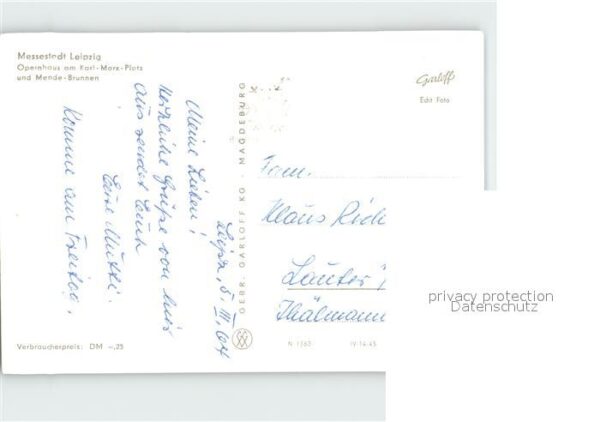 Messestadt Leipzig
Opernhaus am Karl-Marx-Platz
und Mende-Brunnen
Leipz, 5. III. 64
Meine Lieben!
Herzliche Grüße von hier
aus sendet Euch
Eure Mutti.
Komme am Freitag.
Verbraucherpreis: DM -,25
GEBR. GARLOFF KG · MAGDEBURG
Garloff
Edit Foto
Fam.
Klaus
Lauter
Thälmann
N 1360
IV-14-45
privacy protection
Datenschutz